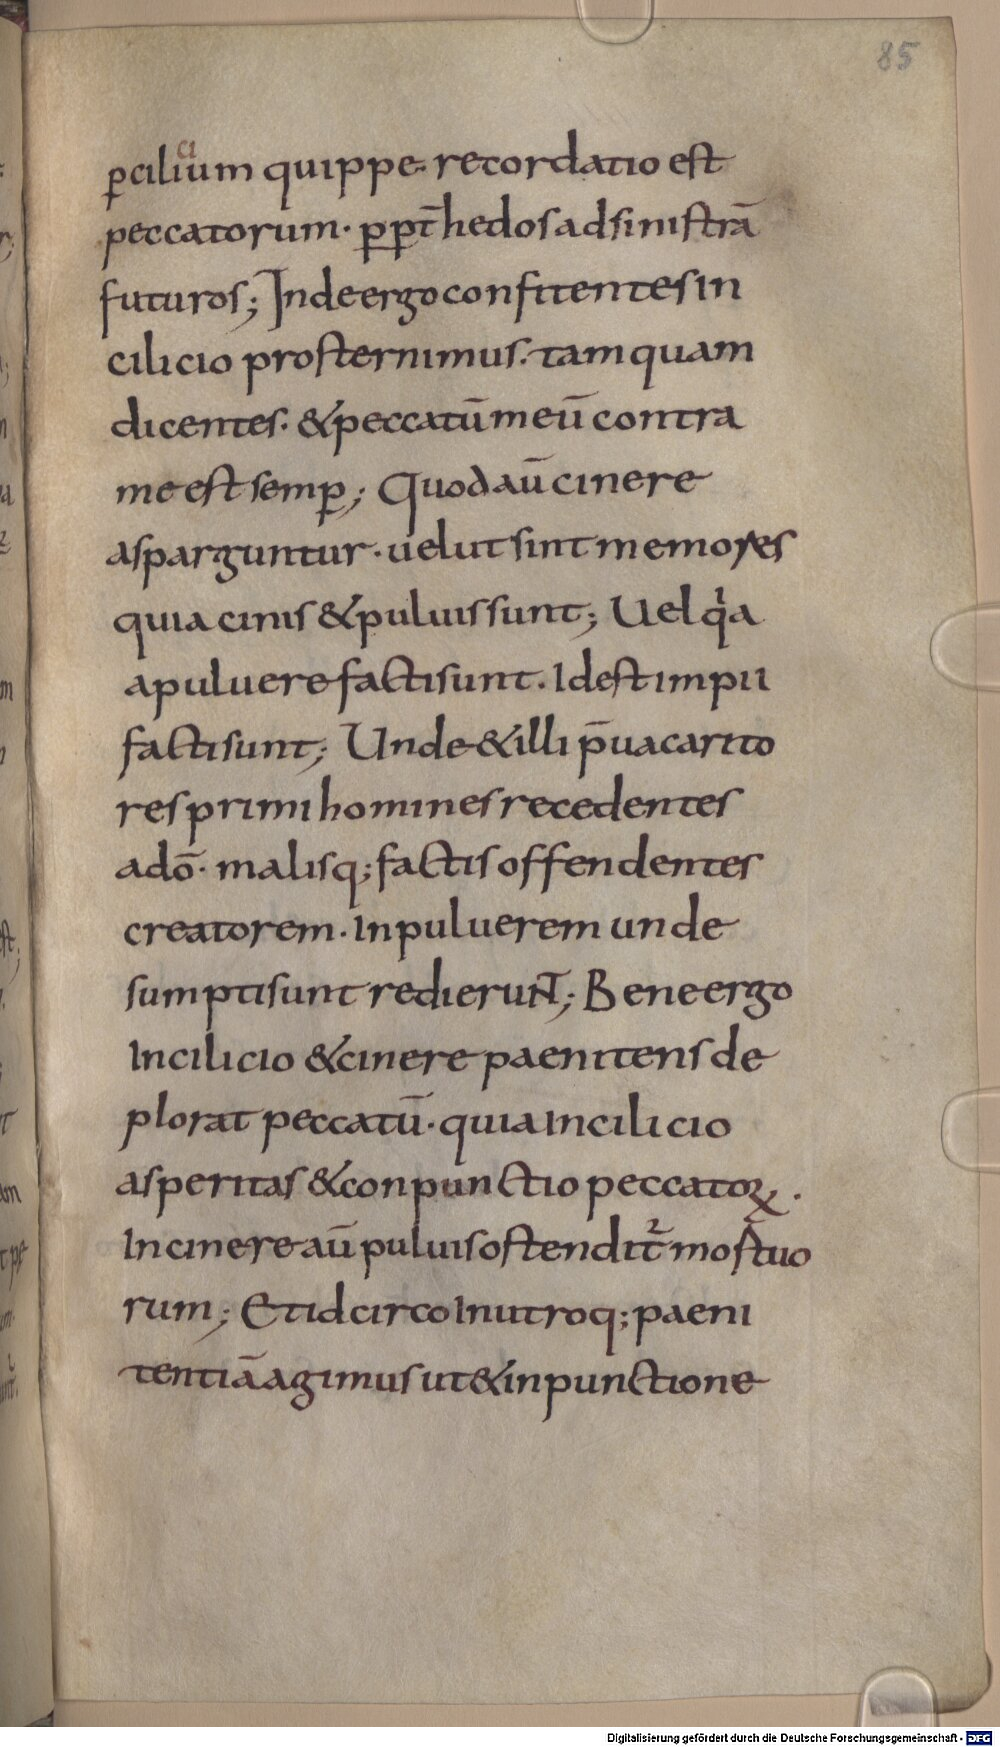 85
ci
ꝑcilium quippe recordatio est
peccatorum· ꝑpt̄ hedos ad sinistrā
futuros; Inde ergo confitentes in
cilicio prosternimus· tamquam
dicentes· & peccatū meū contra
me est semꝑ; Quod aū cinere
asparguntur· uelut sint memores
quia cinis & puluis sunt; Uel qͥa
a puluere facti sunt· Id est impii
facti sunt; Unde & illi p̄uacarito
res primi homines recedentes
a dō· malisq; factis offendentes
creatorem· In puluerem unde
sumpti sunt redierunt; Bene ergo
In cilicio & cinere paenitens de
plorat peccatū· quia In cilicio
asperitas & conpunctio peccatoꝝ·
In cinere aū puluis ostendit᷑ mostuo
rum; Et idcirco In utroq; paeni
tentiā agimus ut & in punctione
Digitalisierung gefördert durch die Deutsche Forschungsgemeinschaft - DFG